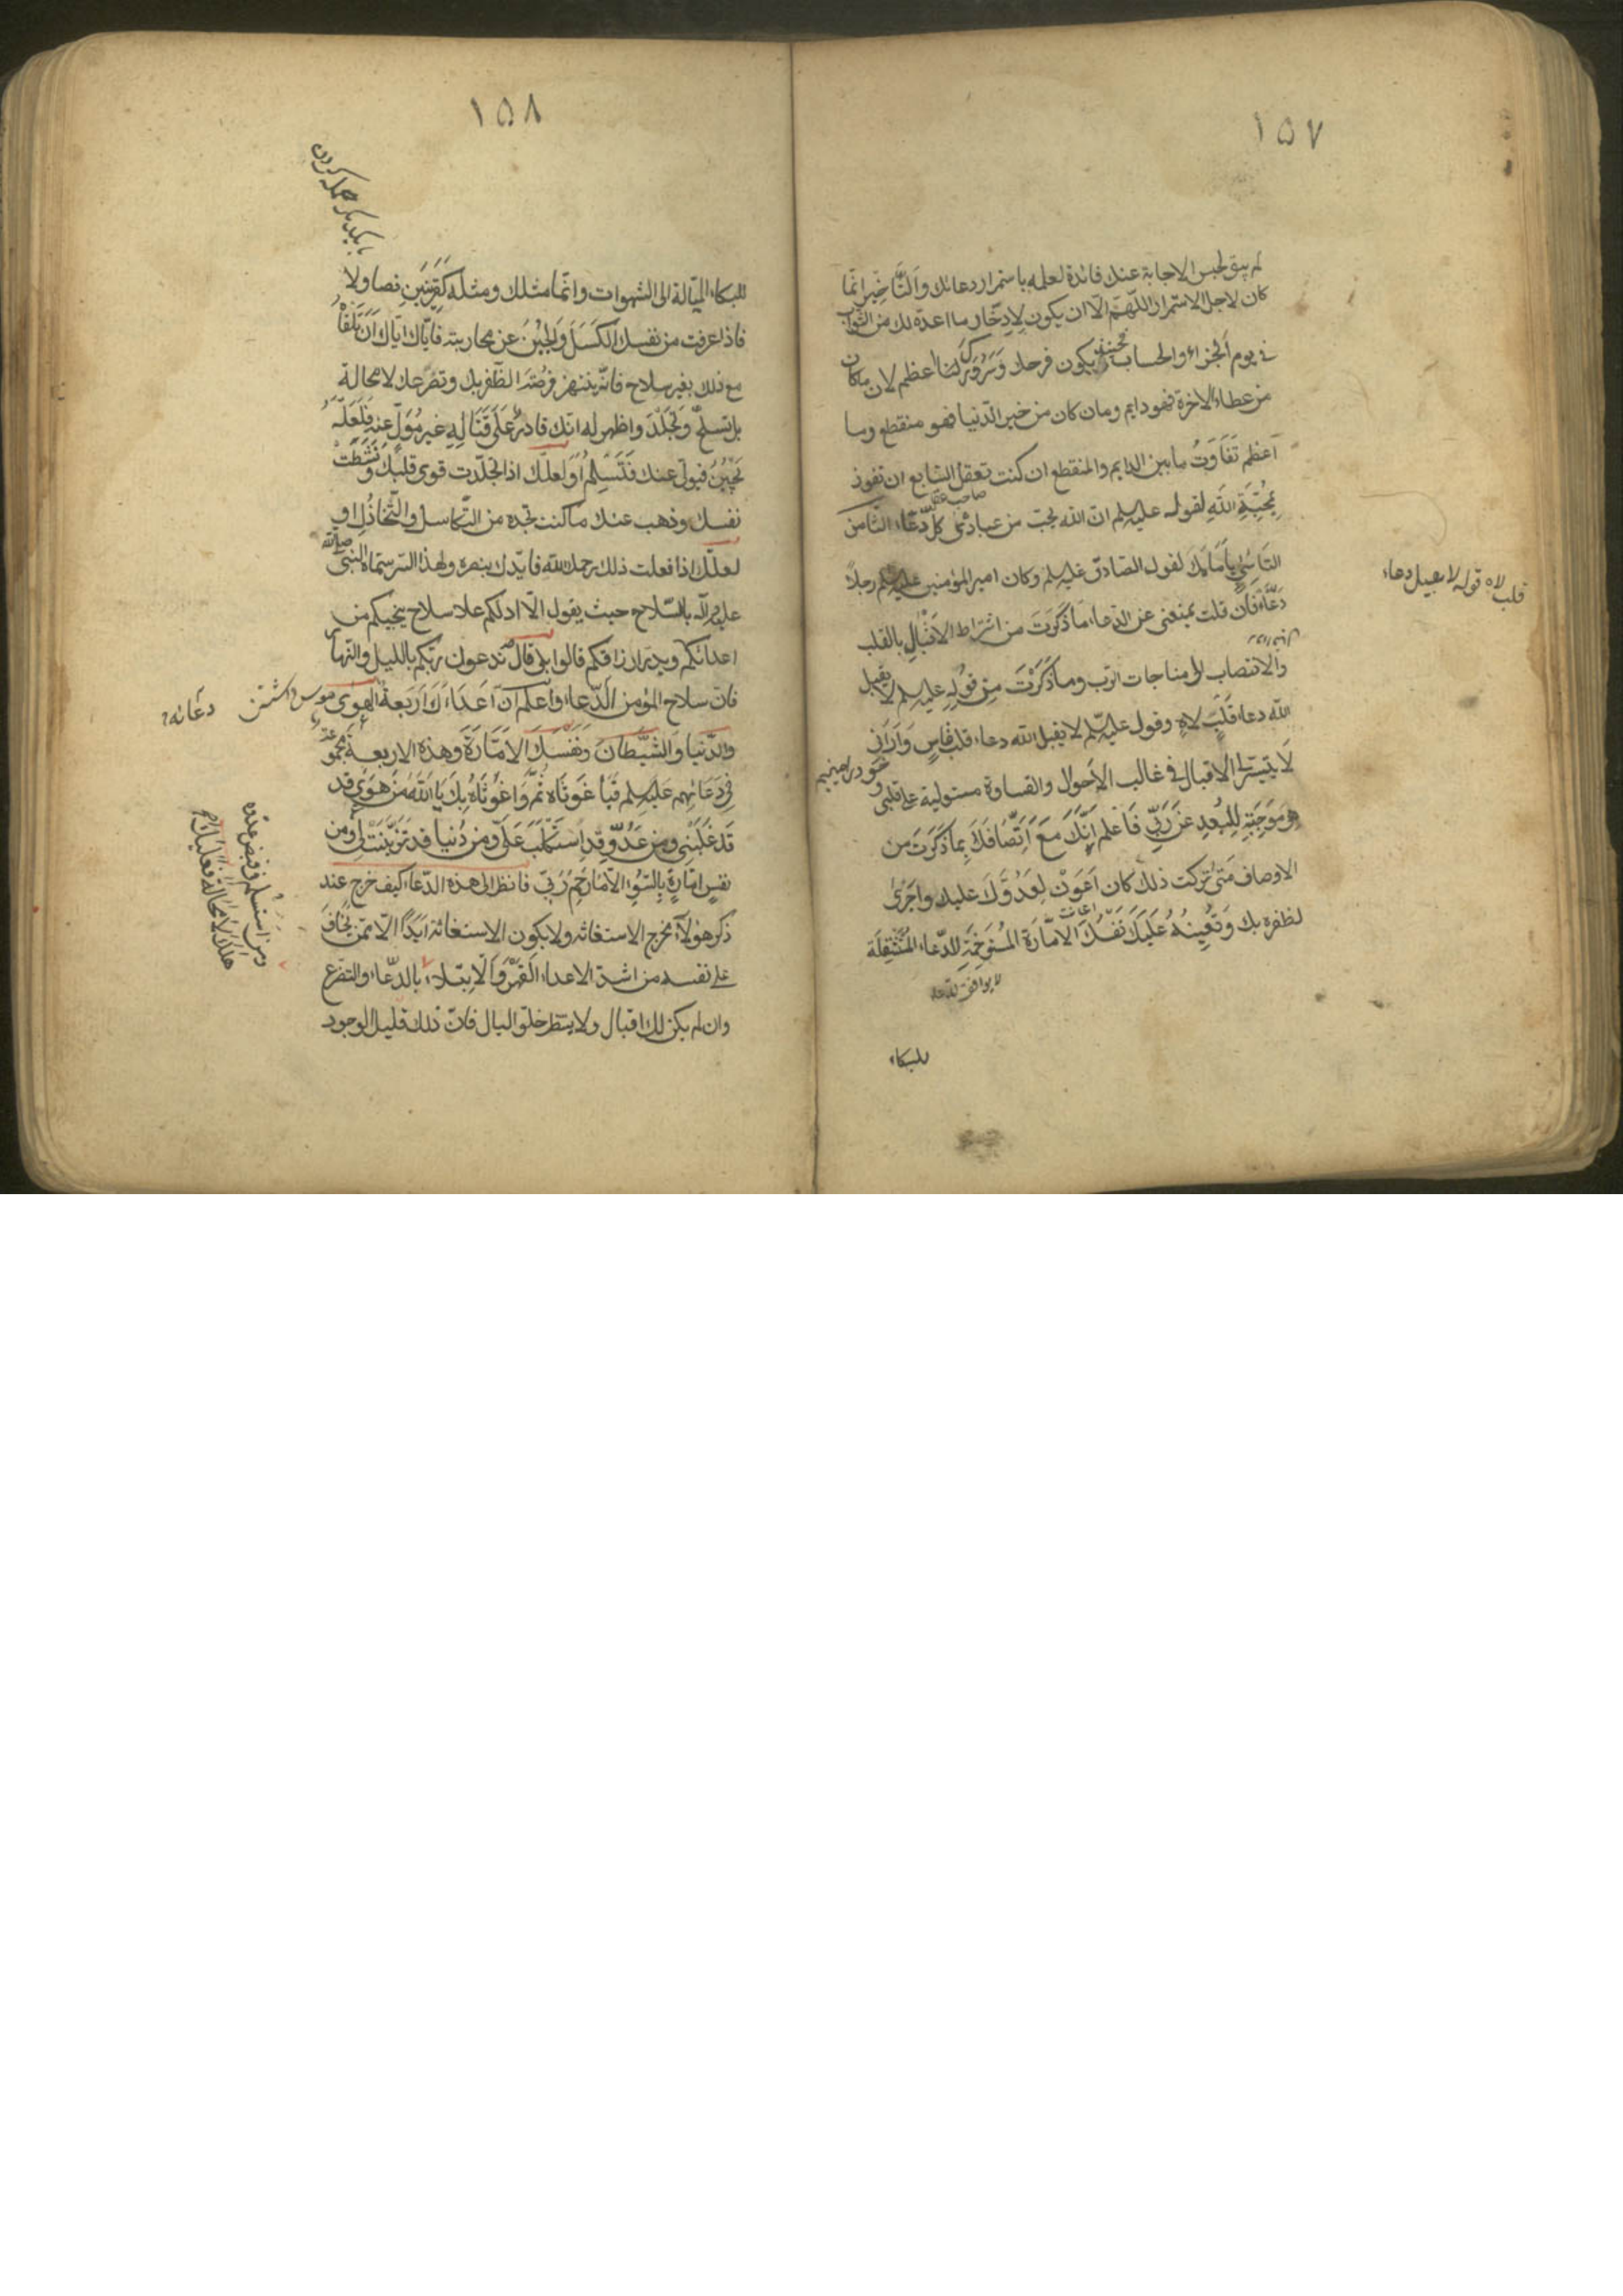 ١٥٧
لم يبق لحبس الاجابة عنك فائدة لعلمه باستمرار دعائك والتأخير انما
كان لاجل الاستمرار اللهم الا ان يكون لادخار ما اعده لك من الثواب
في يوم الجزاء والحساب فحينئذ يكون فرحك وسرورك لنا اعظم لان ما كان
من عطاء الاخرة فهو دايم وما كان من خير الدنيا فهو منقطع وما
اعظم تفاوت ما بين الدايم والمنقطع ان كنت تعقل السابع ان تفوز
بمحبة الله لقوله عليه السلم ان الله يحب من عباده كل دعاء الثامن
التأسي بامامك لقول الصادق عليه السلم وكان امير المؤمنين عليه السلم رجلا
دعاء فان قلت يمنعني عن الدعاء ما ذكرت من اشتراط الاقبال بالقلب
والانتصاب الى مناجات الرب وما ذكرت من قوله عليه السلم لا يقبل
الله دعاء قلب لاه وقول عليه السلم لا يقبل الله دعاء قلب قاس واراني
لا يتيسر لي الاقبال في غالب الاحوال والقساوة مستولية على قلبي و
هو موجبة للبعد عن ربي فاعلم انك مع اتصافك بما ذكرت من
الاوصاف متى تركت ذلك كان اعون لعدوك عليك واجرى
لظفره بك وتعينه عليك نفسك الامارة المستوخمة للدعاء المستثقلة
للبكاء
صاحب
اعانت
خود را مي بينيم
قلب لاه قوله لا يقبل دعاء
١٥٨
للبكاء الميالة الى الشهوات وانما مثلك ومثله كقرينين تصاولا
فاذا عرفت من نفسك الكسل والجبن عن محاربته فاياك اياك ان تلقاه
مع ذلك بغير سلاح فانه ينتهز فرصة الظفر بك وتضرعك لا محالة
بل تسلح وتجلد واظهر له انك قادر على قتاله غير مول عنه فلعله
يجبن فيولي عنك فتسلم او لعلك اذا تجلدت قوى قلبك ونشطت
نفسك وذهب عنك ما كنت تجده من التكاسل والتخاذل او
لعلك اذا فعلت ذلك رحمك الله فايدك بنصره ولهذا السر سماه النبي صلى الله
عليه واله بالسلاح حيث يقول الا ادلكم على سلاح ينجيكم من
اعدائكم ويدر ارزاقكم قالوا بلى قال تدعون ربكم بالليل والنهار
فان سلاح المؤمن الدعاء واعلم ان اعداءك اربعة الهوى
والدنيا والشيطان ونفسك الامارة وهذه الاربعة مجموعة
في دعائهم عليه السلم فيا غوثاه ثم واغوثاه بك يا الله من هوى قد
قد غلبني ومن عدو قد استكلب علي ومن دنيا قد تزينت لي ومن
نفس امارة بالسوء الا ما رحم ربي فانظر الى هذه الدعاء كيف خرج عند
ذكر هؤلاء مخرج الاستغاثه ولا يكون الاستغاثة ابدا الا ممن يخاف
على نفسه من اشد الاعداء القهر والابتلاء بالدعاء والتضرع
وان لم يكن لك اقبال ولا ينتظر خلو البال فان ذلك قليل الوجود
با يكديكر حمله كردن
دعائه
ومن استسلم في قبض عدوه
هلك لا محالة فعليك